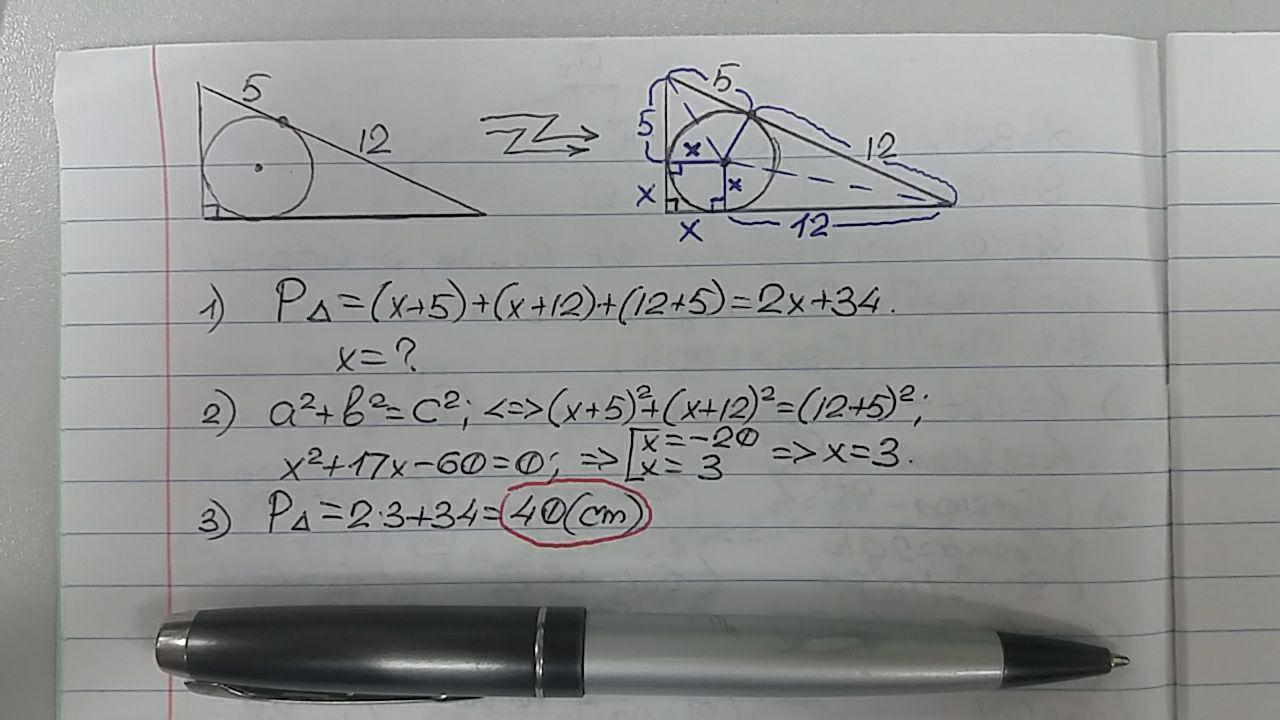 5
12
5
5
12
x
x
x
x
12
1) P△=(x+5)+(x+12)+(12+5)=2x+34.
x=?
2) a²+b²=c²; <=>(x+5)²+(x+12)²=(12+5)²;
x²+17x-60=0; => [x=-20
x=3 => x=3.
3) P△=2·3+34=40(cm)